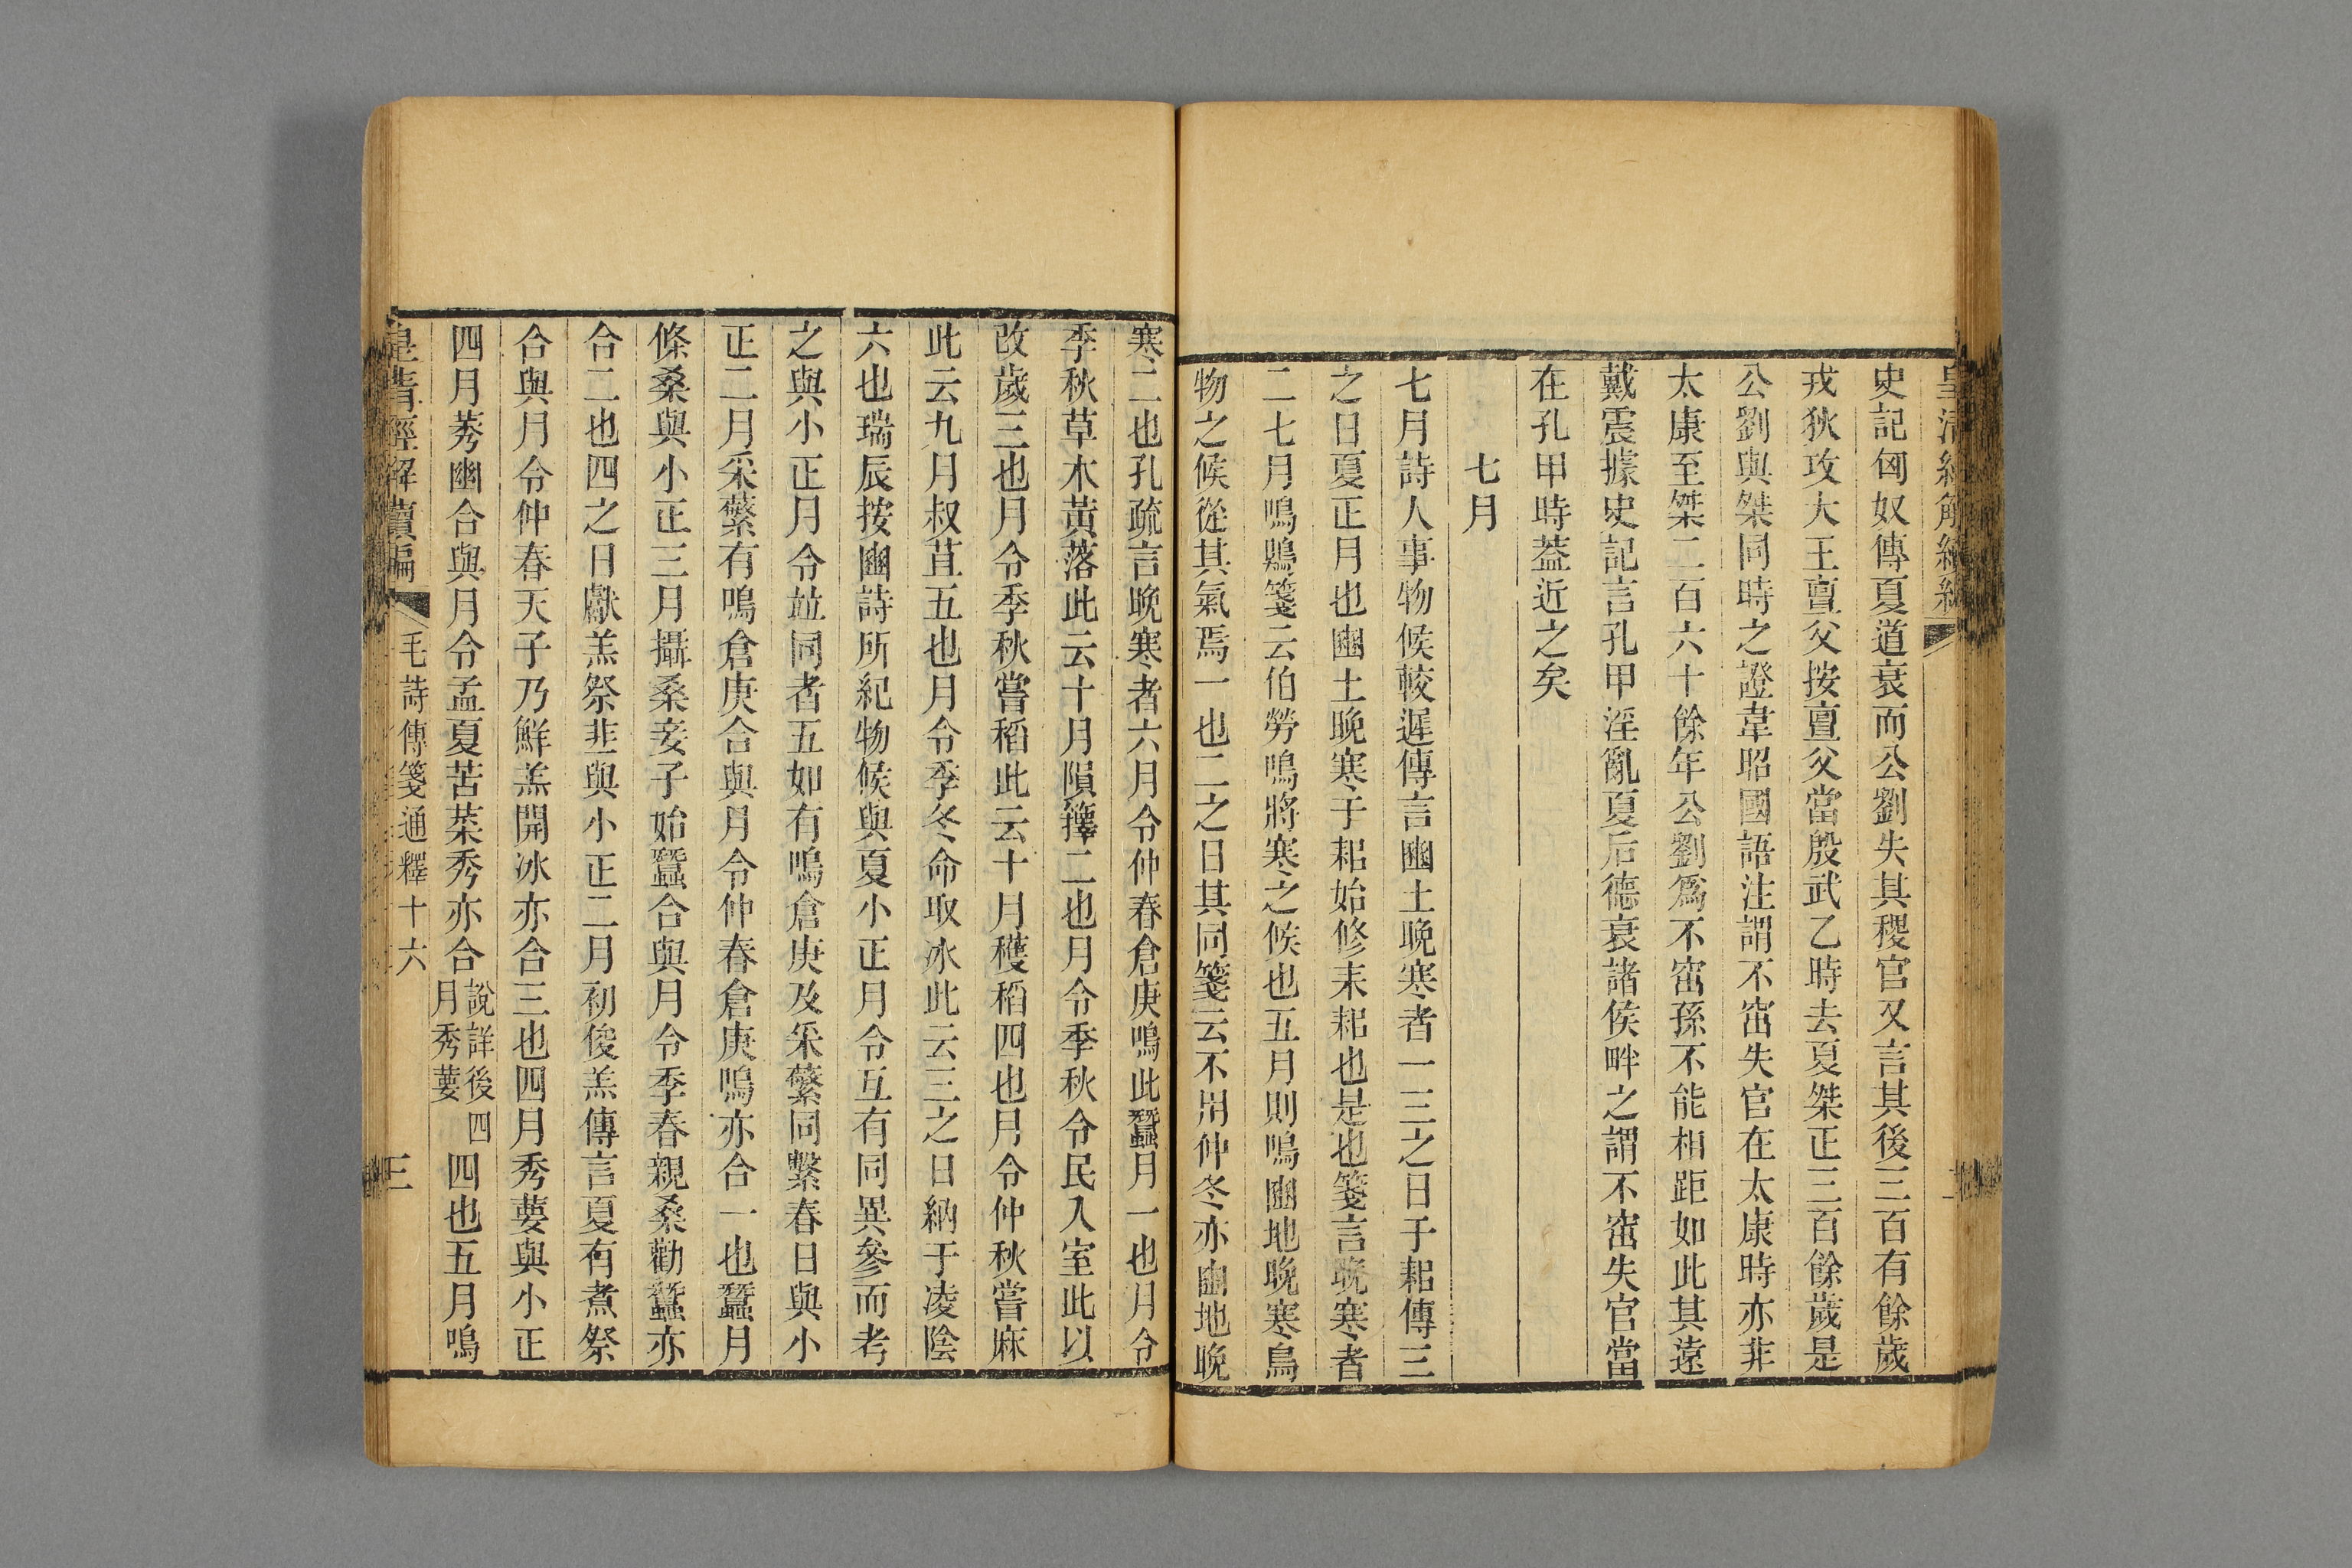 史記匈奴傳夏道衰而公劉失其稷官又言其後三百有餘歲
戎狄攻大王亶父按亶父當殷武乙時去夏桀正三百餘歲是
公劉與桀同時之證韋昭國語注謂不窋失官在太康時亦非
太康至桀二百六十餘年公劉爲不窋孫不能相距如此其遠
戴震據史記言孔甲淫亂夏后德衰諸侯畔之謂不窋失官當
在孔甲時葢近之矣
七月
七月詩人事物候較遲傳言豳土晚寒者一三之日于耜傳三
之日夏正月也豳土晚寒于耜始修耒耜也是也箋言晚寒者
二七月鳴鵙箋云伯勞鳴將寒之候也五月則鳴豳地晚寒鳥
物之候從其氣焉一也二之日其同箋云不用仲冬亦豳地晚
寒二也孔疏言晚寒者六月令仲春倉庚鳴此蠶月一也月令
季秋草木黃落此云十月隕蘀二也月令季秋令民入室此以
改歲三也月令季秋嘗稻此云十月穫稻四也月令仲秋嘗麻
此云九月叔苴五也月令季冬命取冰此云三之日納于凌陰
六也瑞辰按豳詩所紀物候與夏小正月令互有同異參而考
之與小正月令竝同者五如有鳴倉庚及采蘩同繫春日與小
正二月采蘩有鳴倉庚合與月令仲春倉庚鳴亦合一也蠶月
條桑與小正三月攝桑妾子始蠶合與月令季春親桑勸蠶亦
合二也四之日獻羔祭韭與小正二月初俊羔傳言夏有煮祭
合與月令仲春天子乃鮮羔開冰亦合三也四月秀葽與小正
四月莠幽合與月令孟夏苦菜秀亦合說詳後四月秀葽四也五月鳴
皇清經解續編 毛詩傳箋通釋十六 三